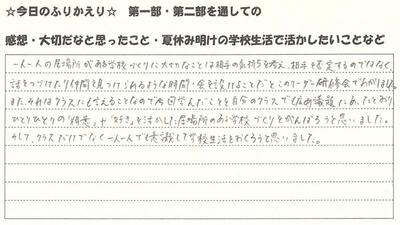 ☆今日のふりかえり☆ 第一部・第二部を通しての
感想・大切だなと思ったこと・夏休み明けの学校生活で活かしたいことなど
一人一人の居場所がある学校づくりに大切なことは相手の気持ちを考え、相手を否定するのではなく
話をつなげたり仲間を見つけられるような時間・会を設けることだとこのリーダー研修会でわかりました。
また、それはクラスにも言えることなので今回学んだことを自分のクラスでも
ひとりひとりの"得意"や"好き"を活かした居場所のある学校づくりをがんばろうと思いました。
そして、クラスだけでなく一人一人でも意識して学校生活をおくろうと思いました。